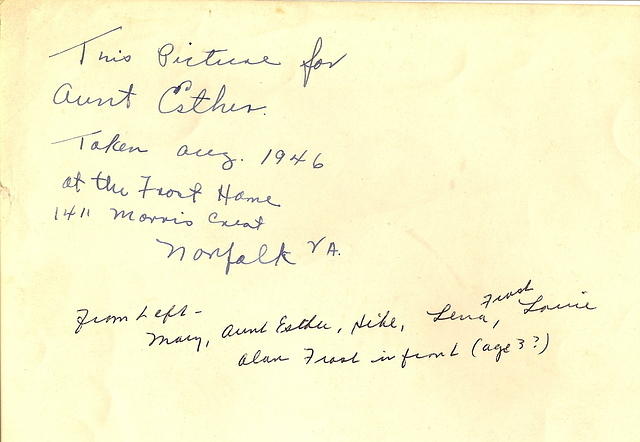 This Picture for
Aunt Esther.
Taken Aug. 1946
at the Frost Home
1411 Morris Crest
Norfolk VA.
From Left -
Mary, Aunt Esther, Hike, Lena Frost, Louie
Alan Frost in front (age 3?)